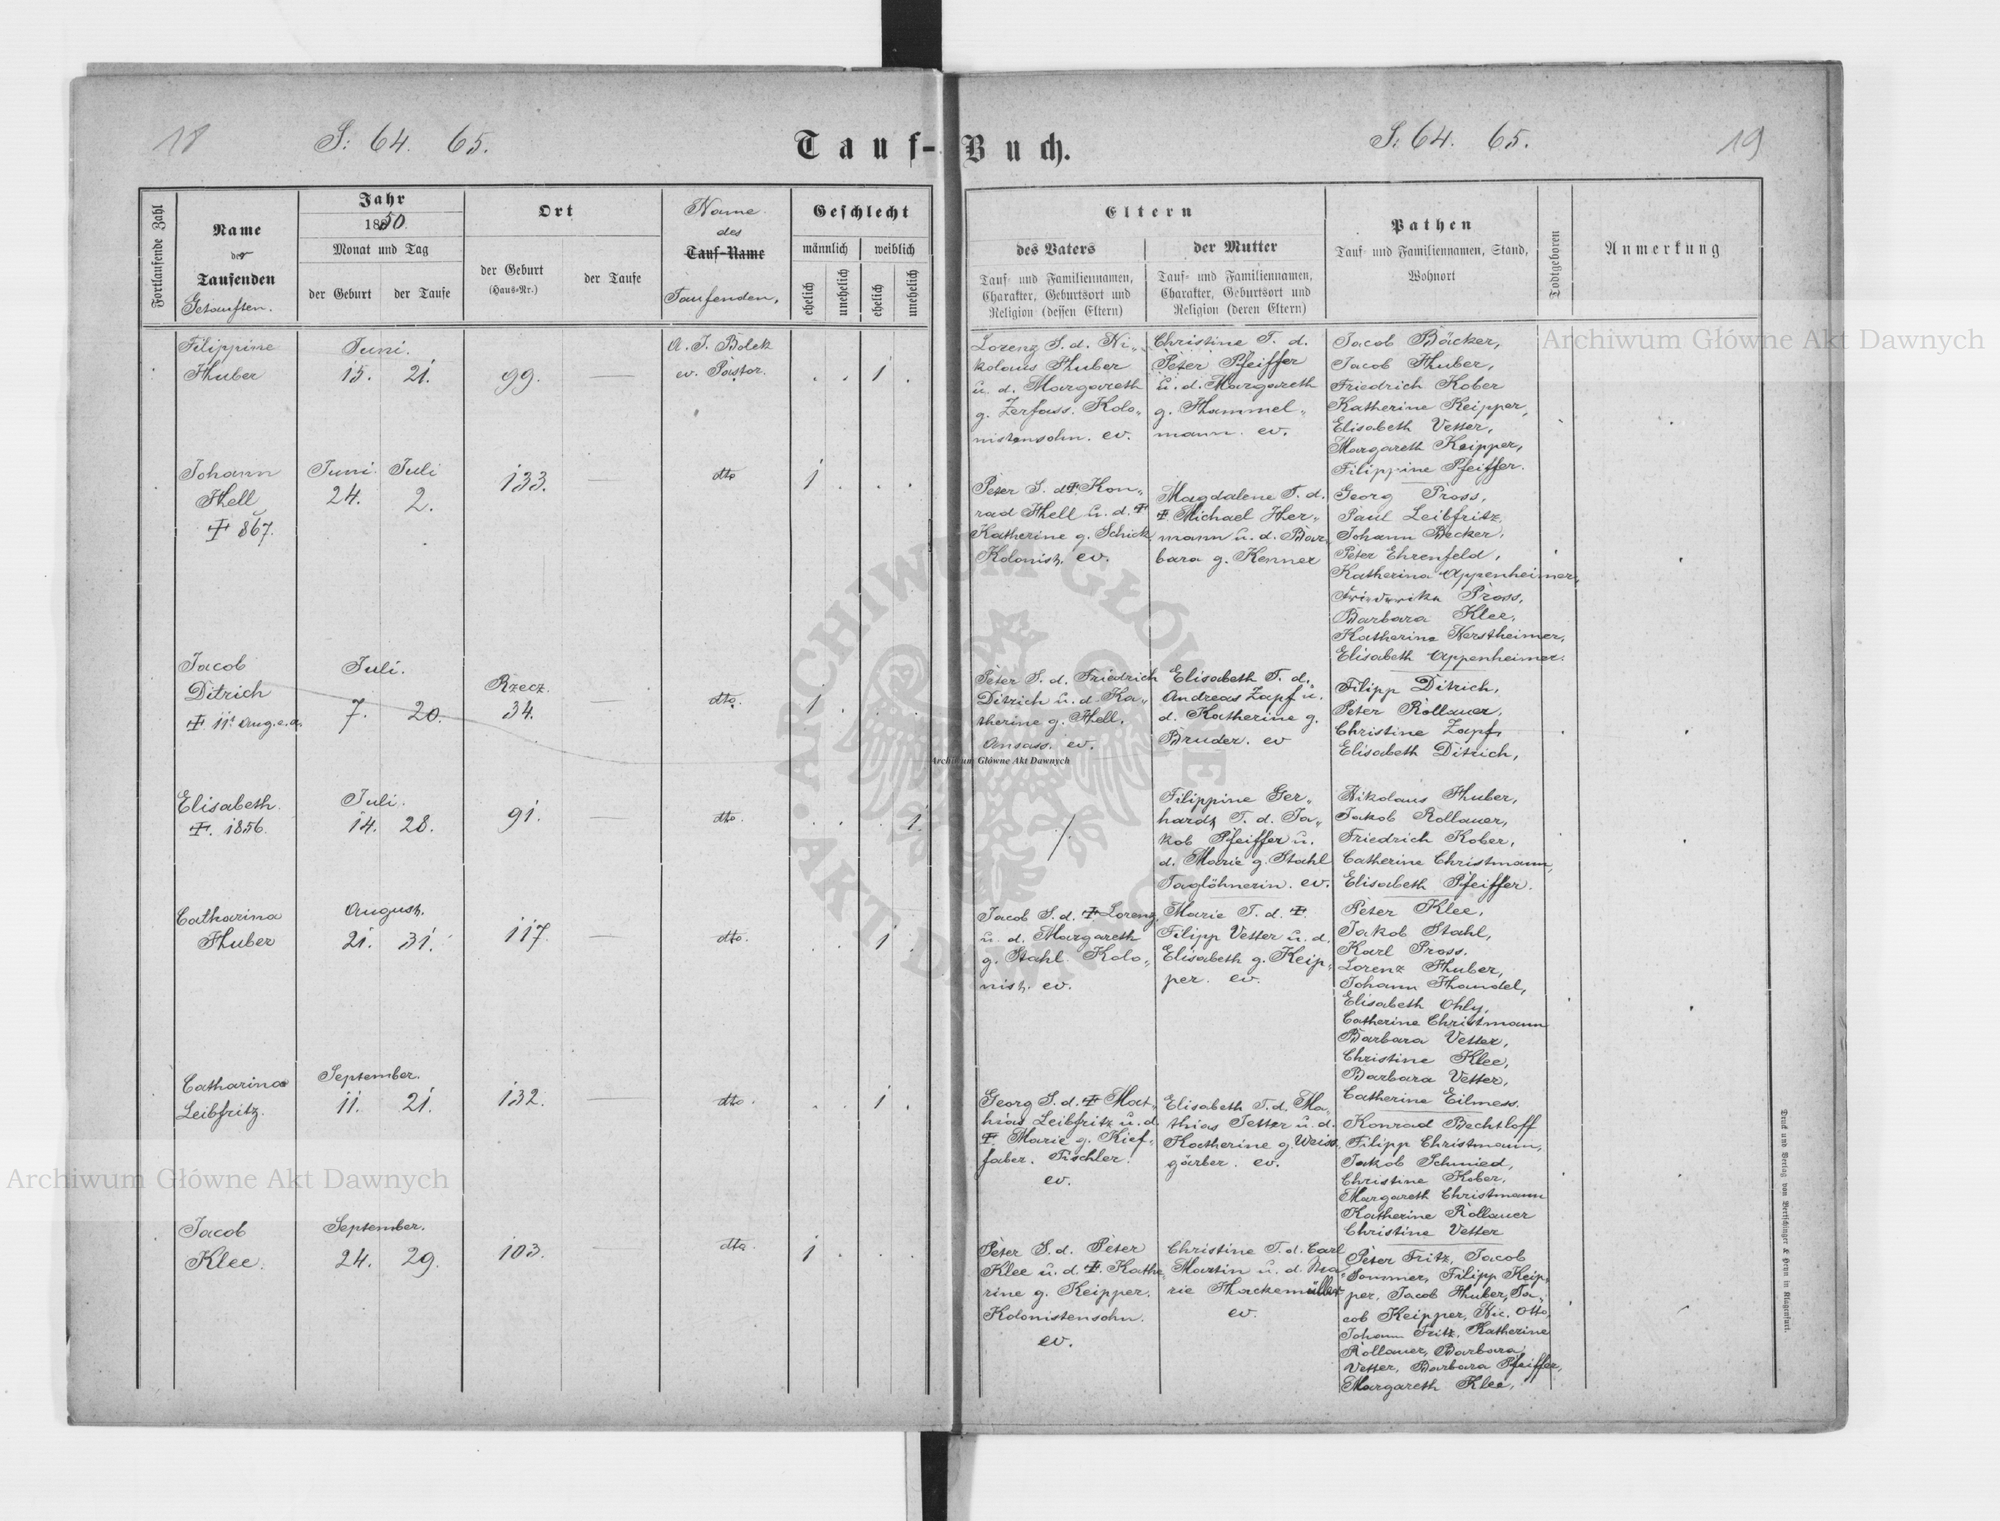 18
S: 64. 65.
Tauf-Buch.
S: 64. 65.
19
Fortlaufende Zahl
Name
der
Taufenden
Getauften.
Jahr
1850.
Monat und Tag
der Geburt
der Taufe
Ort
der Geburt
(Haus-Nr.)
der Taufe
Name
des
Tauf-Name
Taufenden.
Geschlecht
männlich
weiblich
ehelich
unehelich
ehelich
unehelich
Eltern
des Vaters
Tauf- und Familiennamen,
Charakter, Geburtsort und
Religion (dessen Eltern)
der Mutter
Tauf- und Familiennamen,
Charakter, Geburtsort und
Religion (deren Eltern)
Pathen
Tauf- und Familiennamen, Stand,
Wohnort
Todtgeboren
Anmerkung
Filippine
Huber
Juni.
15. 21.
99.
A. J. Bolek
ev. Pastor.
1
Lorenz S. d. Ni-
kolaus Huber
u. d. Margareth
g. Zerfass. Kolo-
nistensohn. ev.
Christine T. d.
Peter Pfeiffer
u. d. Margareth
g. Hammel-
mann. ev.
Jacob Bäcker,
Jacob Huber,
Friedrich Kober
Katherine Keipper,
Elisabeth Vetter,
Margareth Keipper,
Filippine Pfeiffer.
Johann
Hell
† 867.
Juni. Juli
24. 2.
133.
dto
1
Peter S. d. † Kon-
rad Hell u. d. †
Katherine g. Schick
Kolonist. ev.
Magdalene T. d.
† Michael Her-
mann u. d. Bar-
bara g. Kenner
Georg Pross,
Paul Leibfritz,
Johann Becker,
Peter Ehrenfeld,
Katharina Appenheimer,
Friederika Pross,
Barbara Klee,
Katherine Herstheimer,
Elisabeth Appenheimer.
Jacob
Ditrich
† 11t Aug. e. a.
Juli.
7. 20.
Rzecz.
34.
dto.
1
Peter S. d. Friedrich
Ditrich u. d. Ka-
therine g. Hell.
Ansass. ev.
Elisabeth T. d.
Andreas Zapf u.
d. Katherine g.
Bruder. ev
Filipp Ditrich,
Peter Rollauer,
Christine Zapf,
Elisabeth Ditrich,
Elisabeth.
†. 1856.
Juli.
14. 28.
91.
dto.
1.
/
Filippine Ger-
hardt T. d. Ja-
kob Pfeiffer u.
d. Marie g. Stahl
Taglöhnerin. ev.
Nikolaus Huber,
Jakob Rollauer,
Friedrich Kober,
Catherine Christmann,
Elisabeth Pfeiffer.
Catharina
Huber
August.
21. 31.
117.
dto.
1
Jacob S. d. † Lorenz
u. d. Margareth
g. Stahl. Kolo-
nist. ev.
Marie T. d. †.
Filipp Vetter u. d.
Elisabeth g. Keip-
per. ev.
Peter Klee,
Jakob Stahl,
Karl Pross.
Lorenz Huber,
Johann Handel,
Elisabeth Ohly,
Catherine Christmann
Barbara Vetter,
Christine Klee,
Barbara Vetter,
Catherine Eilmess.
Catharina
Leibfritz.
September.
11. 21.
132.
dto.
1
Georg S. d. † Mat-
hias Leibfritz u. d.
†. Marie g. Kief-
faber. Tischler.
ev.
Elisabeth T. d. Ma-
thias Jetter u. d.
Katherine g. Weiss
gärber. ev.
Konrad Bechtloff
Filipp Christmann,
Jakob Schmied,
Christine Kober,
Margareth Christmann
Katherine Rollauer
Christine Vetter
Jacob
Klee.
September.
24. 29.
103.
dto
1
Peter S. d. Peter
Klee u. d. †. Kathe-
rine g. Keipper.
Kolonistensohn.
ev.
Christine T. d. Carl
Martin u. d. Ma-
rie Hackemüller
ev.
Peter Fritz, Jacob
Sommer, Filipp Keip-
per, Jacob Huber, Ja-
cob Keipper, Nic. Otto,
Johann Fritz, Katherine
Rollauer, Barbara
Vetter, Barbara Pfeiffer,
Margareth Klee,
Druck und Verlag von Bertschinger & Heyn in Klagenfurt.
Archiwum Główne Akt Dawnych
Archiwum Główne Akt Dawnych
Archiwum Główne Akt Dawnych
ARCHIWUM GŁÓWNE AKT DAWNYCH